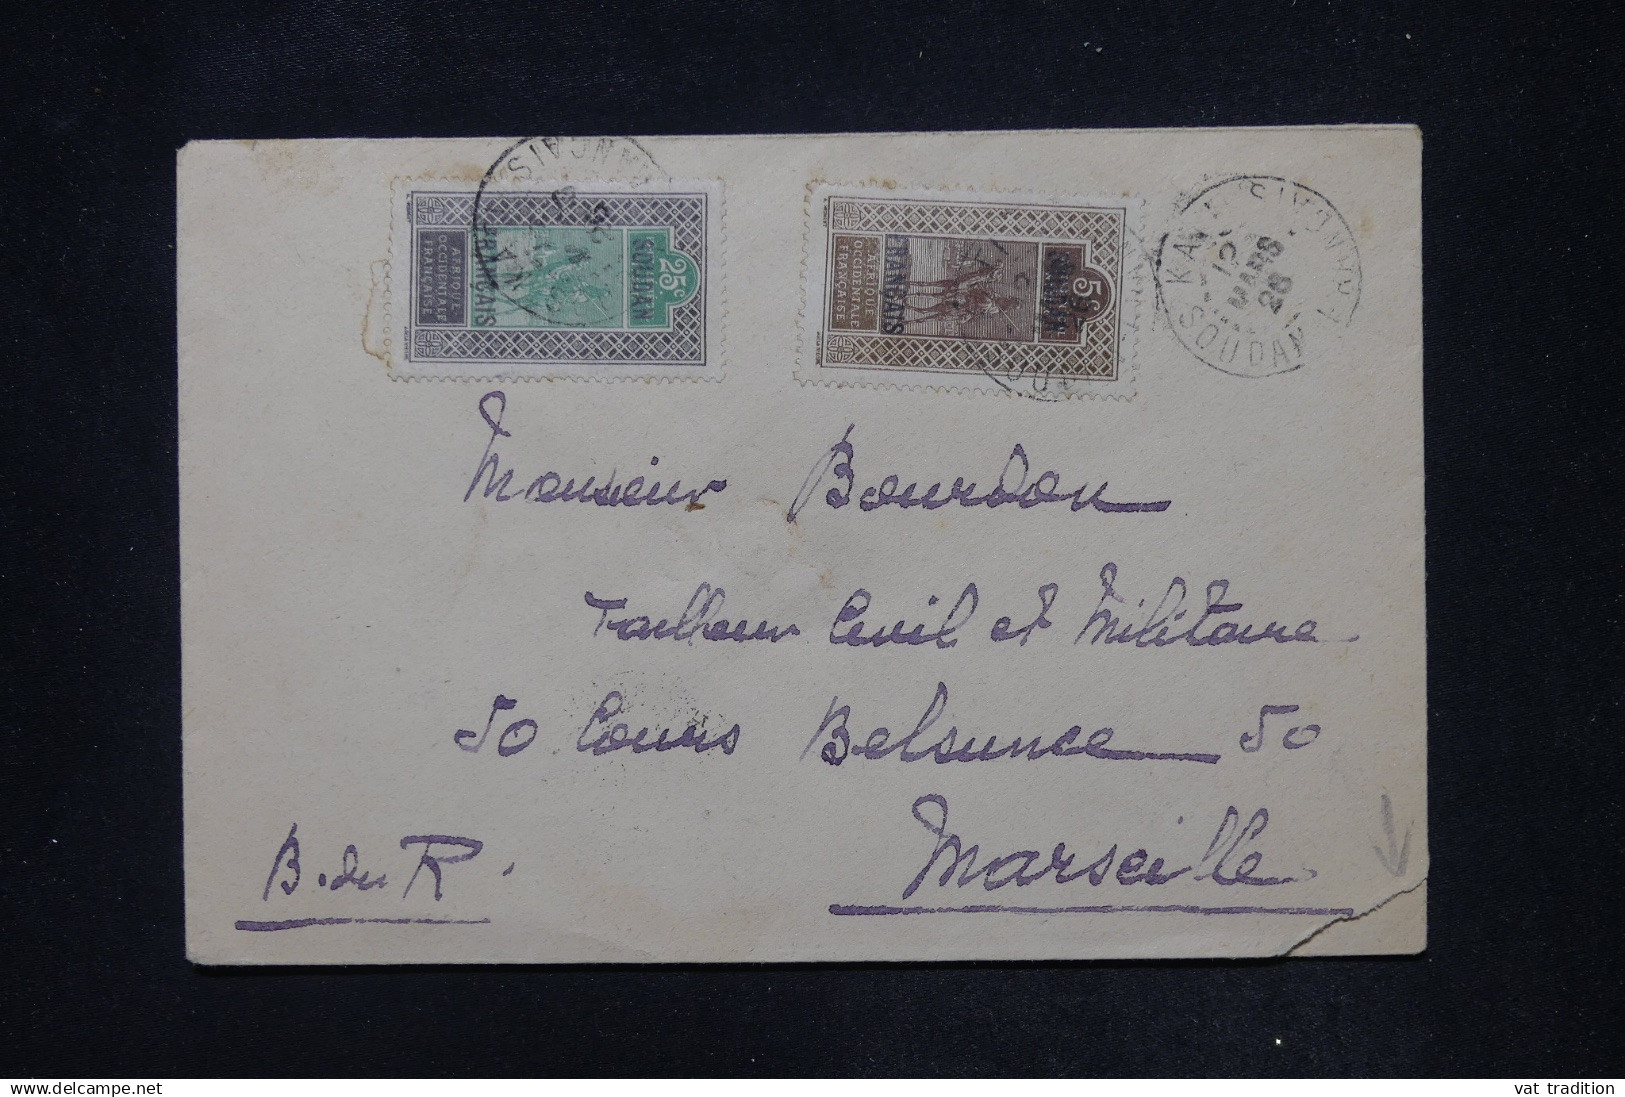 25c
SOUDAN
FRANÇAIS
AFRIQUE
OCCIDENTALE
FRANÇAISE
5c
SOUDAN
FRANÇAIS
AFRIQUE
OCCIDENTALE
FRANÇAISE
12
MARS
26
SOUDAN FRANCAIS
Monsieur Bourdon
Tailleur Civil et Militaire
50 Cours Belsunce 50
Marseille
B. du R.
vat tradition